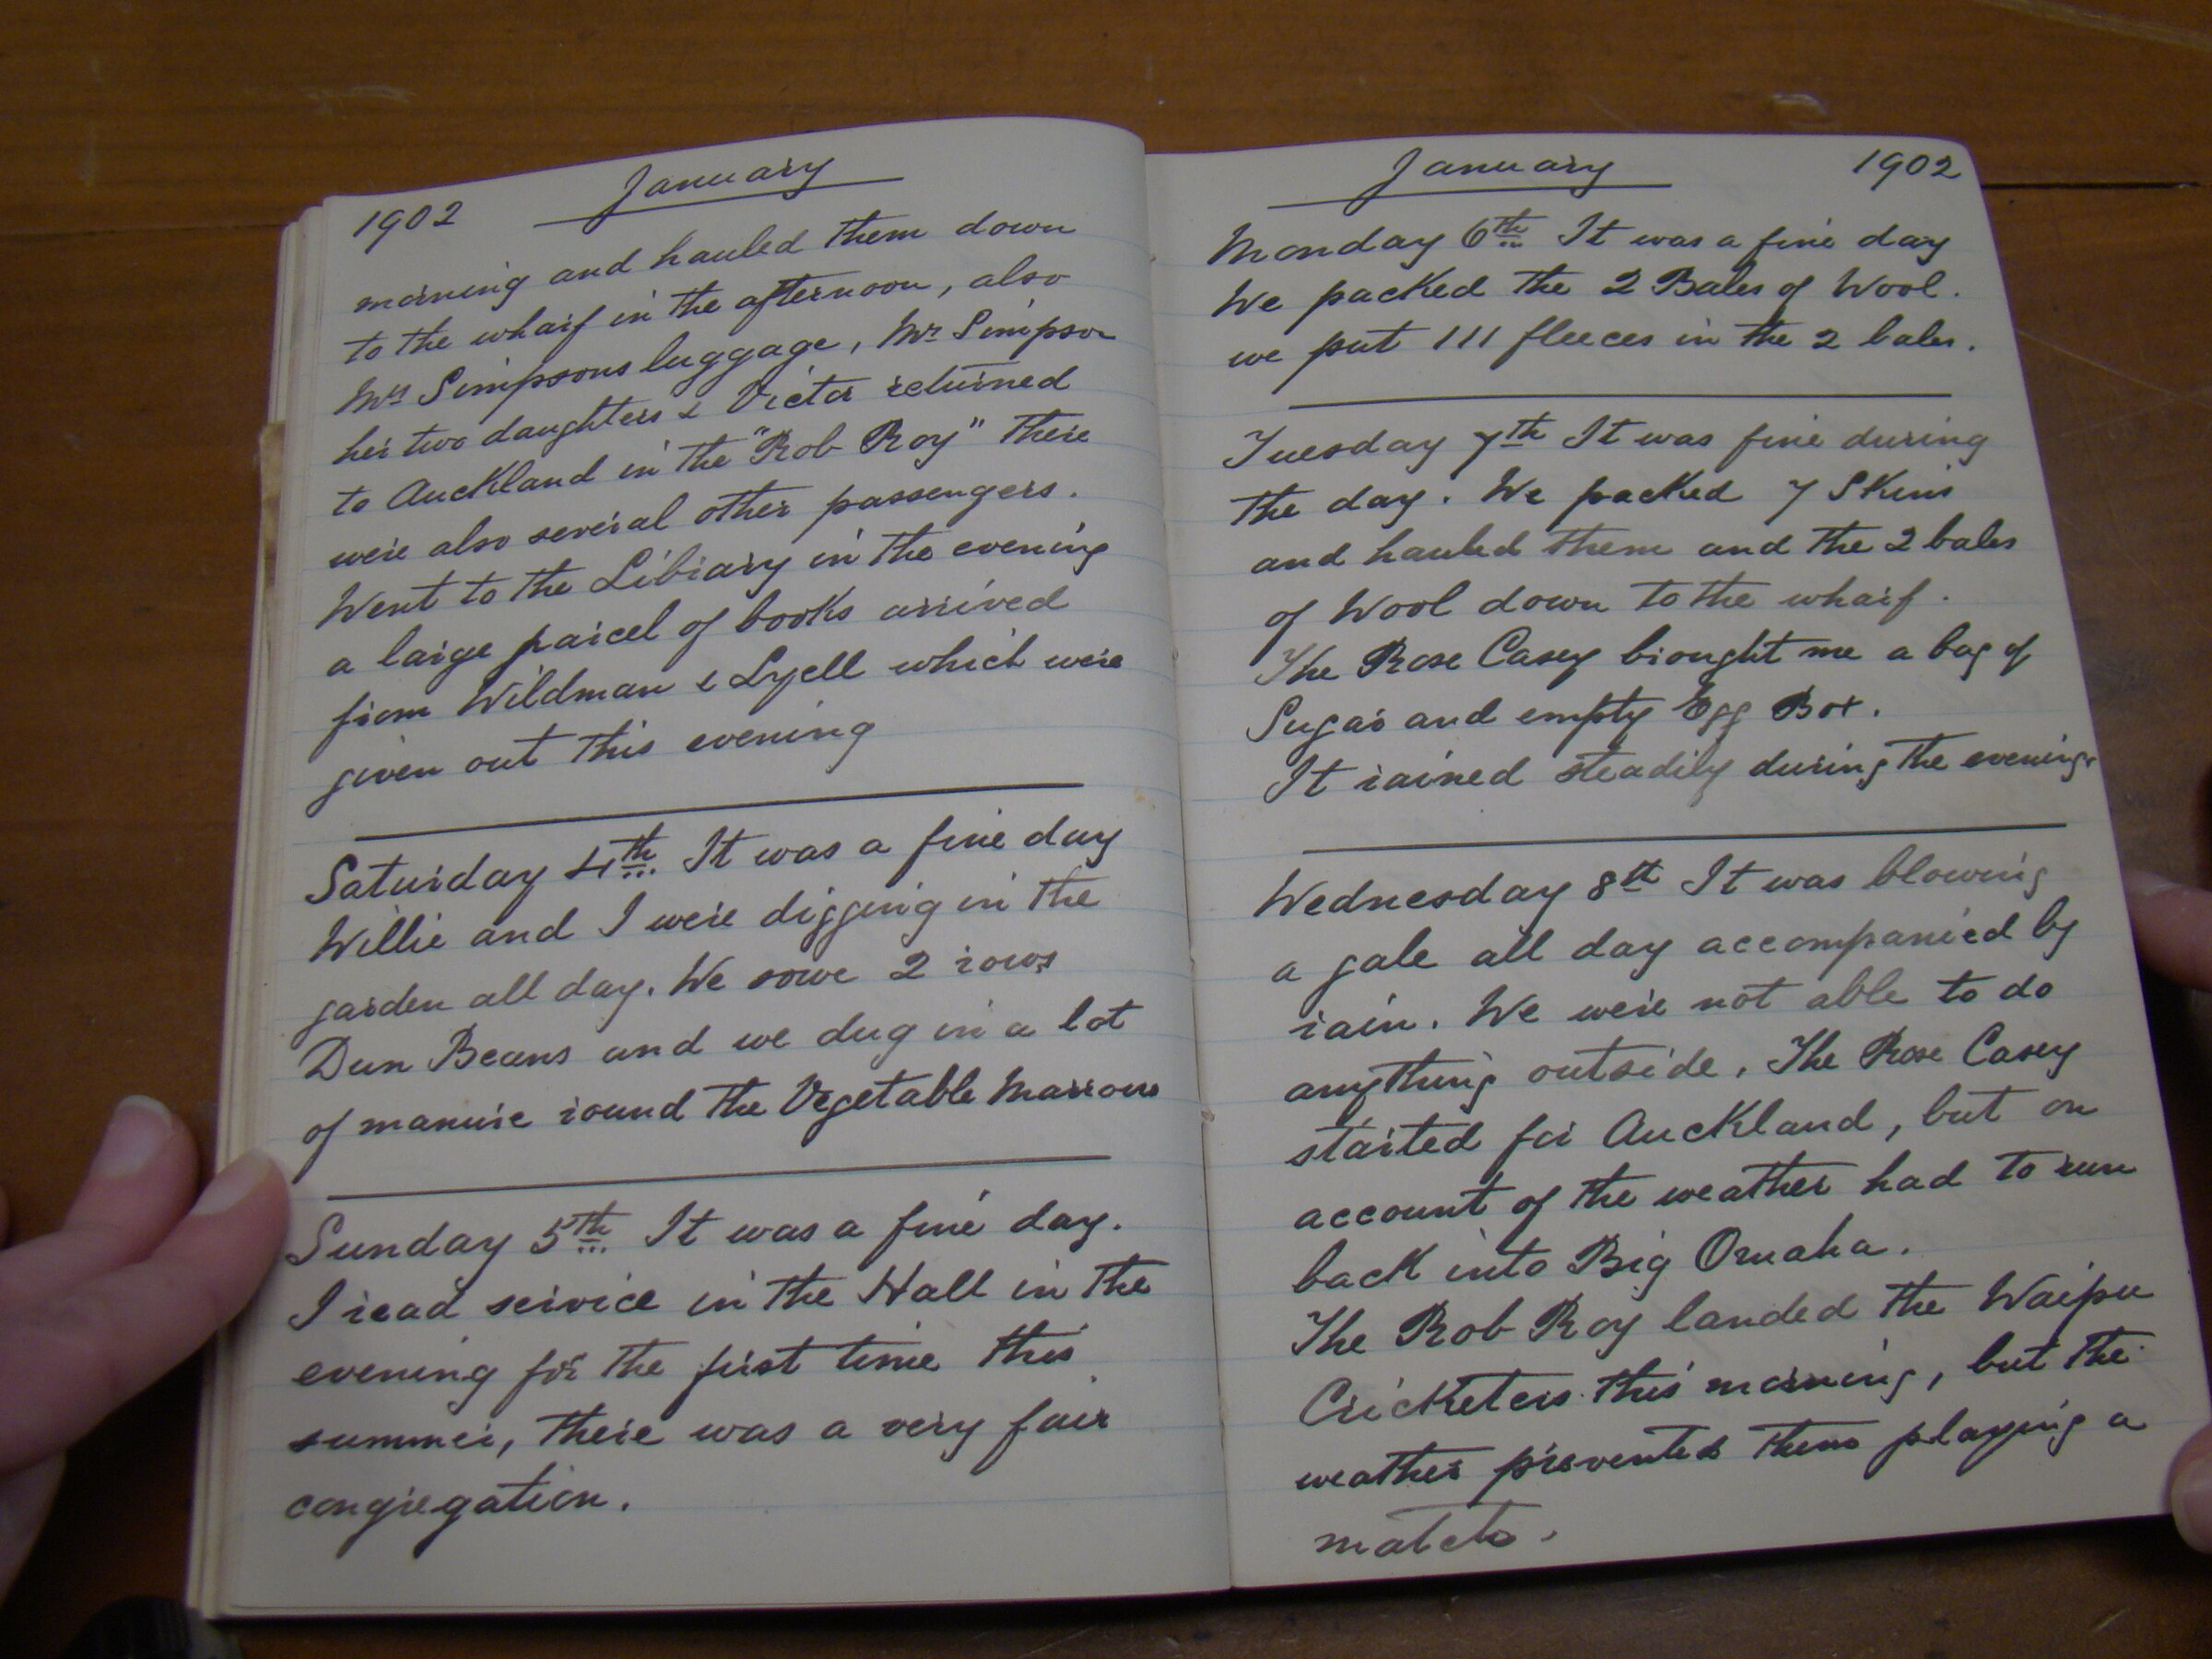 1902 January
morning and hauled them down
to the wharf in the afternoon, also
Mrs Simpsons luggage, Mrs Simpson
her two daughters & Victor returned
to Auckland in the "Rob Roy" There
were also several other passengers.
Went to the Library in the evening
a large parcel of books arrived
from Wildman & Lyell which were
given out this evening
Saturday 4th It was a fine day
Willie and I were digging in the
garden all day. We sowe 2 rows
Dun Beans and we dug in a lot
of manure round the Vegetable Marrows
Sunday 5th It was a fine day.
I read service in the Hall in the
evening for the first time this
summer, there was a very fair
congregation.
January 1902
Monday 6th It was a fine day
We packed the 2 Bales of Wool.
we put 111 fleeces in the 2 bales.
Tuesday 7th It was fine during
the day. We packed 7 Skins
and hauled them and the 2 bales
of Wool down to the wharf.
The Rose Casey brought me a bag of
Sugar and empty Egg Box.
It rained steadily during the evening.
Wednesday 8th It was blowing
a gale all day accompanied by
rain. We were not able to do
anything outside. The Rose Casey
started for Auckland, but on
account of the weather had to run
back into Big Omaha.
The Rob Roy landed the Waipu
Cricketers this morning, but the
weather prevented them playing a
match.